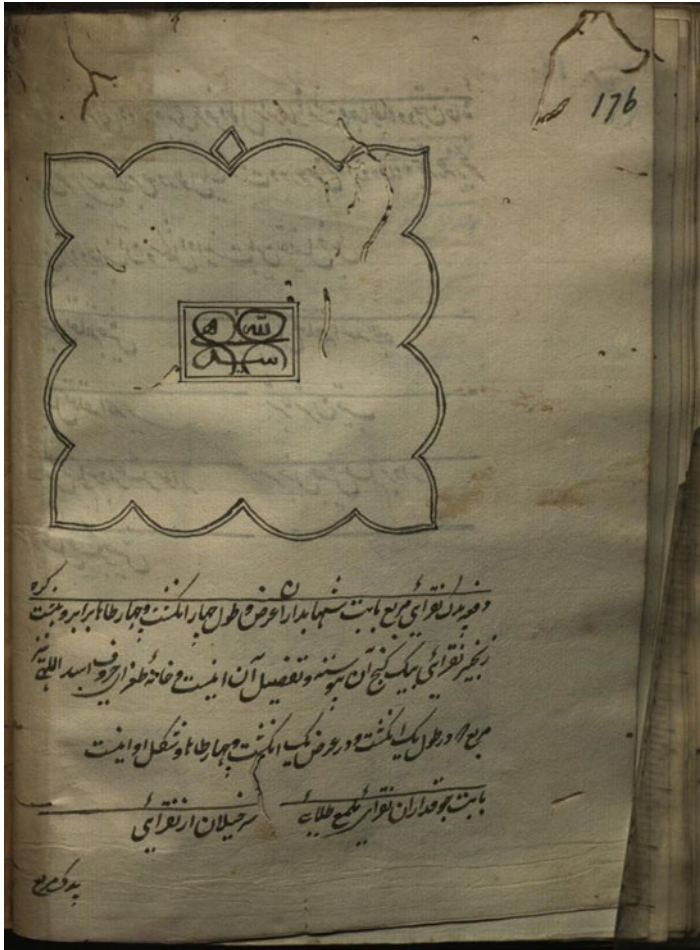 176
الله
اسد
نقرائی مربع بابت عرض و طول چهار انگشت و چهار طاها برابر و
زنجیر نقرائی بیک کنج آن پیوسته و تفصیل آن اینست و خانهٔ طغرای حروف اسد اللهی نیز
مربع در طول یک انگشت و در عرض یک انگشت و چهار طاها و شکل او اینست
بابت چوقداران نقرائی ملمع طلائی سرخیلان از نقرائی
یدک مربع